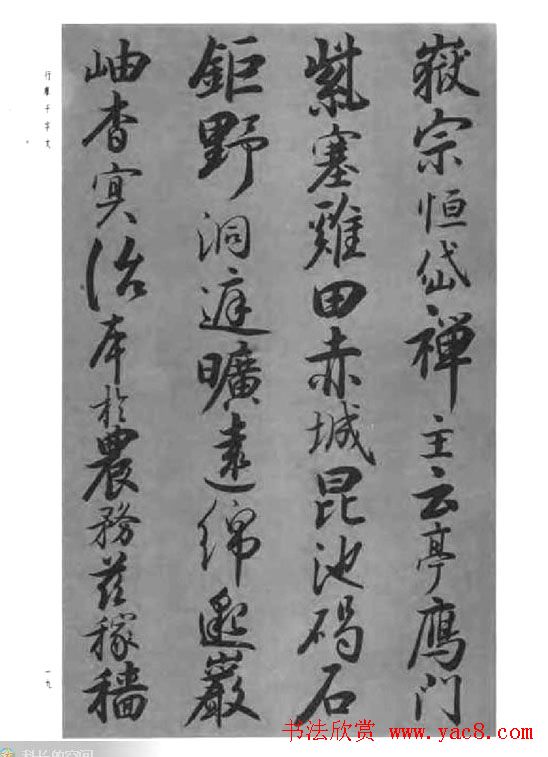 嶽宗恒岱禪主云亭鴈門
紫塞雞田赤城昆池碣石
鉅野洞庭曠遠綿邈巖
岫杳冥治本於農務茲稼穡
行書千字文
一九
书法欣赏 www.yac8.com
科长的空间